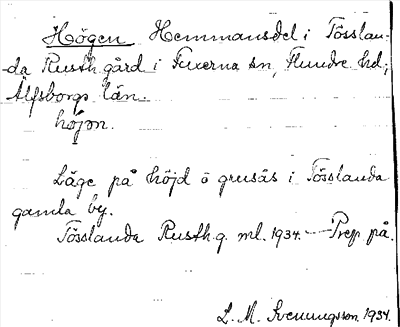 Högen Hemmansdel i Tösslan-
da Rusth. gård i Fuxerna sn, Flundre hd;
Älfsborgs län.
höjọn.
Läge på höjd o grusås i Tösslanda
gamla by.
Tösslanda Rusth.g. ml. 1934. — Prep på.
L. M. Svenungsson. 1934.